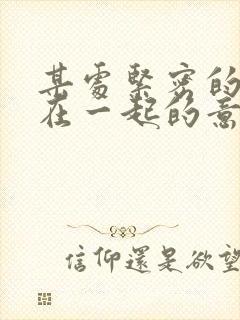 甚處緊密的
在一起的意
信仰還是欲望